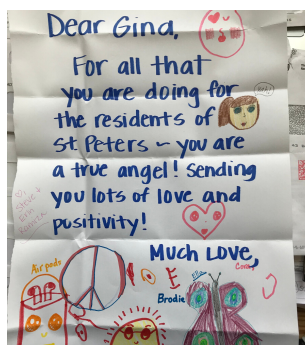 Dear Gina,
For all that
you are doing for
the residents of
St Peters ~ you are
a true angel! Sending
you lots of love and
positivity!
Much Love,
Air pods
Brodie